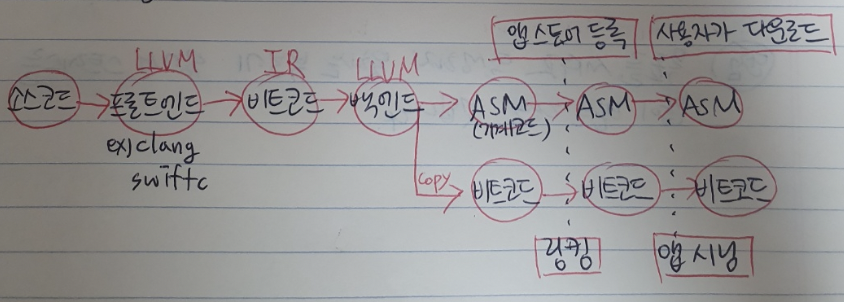 앱스토어 등록 사용자가 다운로드
LLVM IR LLVM
소스코드 프론트엔드 비트코드 백엔드 ASM ASM ASM
(기계코드)
ex) clang
swiftc
copy 비트코드 비트코드 비트코드
링킹 앱 시닝